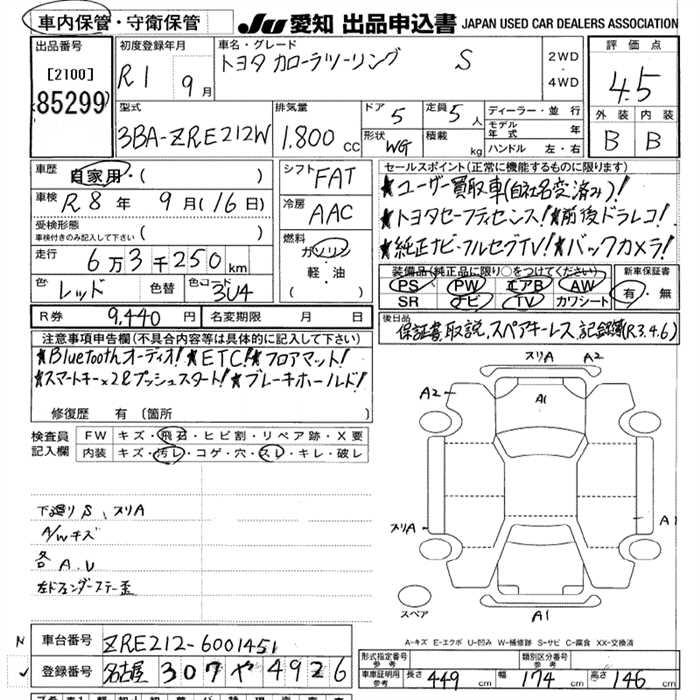 車内保管・守衛保管
JU 愛知 出品申込書 JAPAN USED CAR DEALERS ASSOCIATION
出品番号
[2100]
85299
初度登録年月
R1 9月
車名・グレード
トヨタ カローラツーリング S
2WD
・
4WD
評価点
4.5
外装 内装
B B
型式
3BA-ZRE212W
排気量
1.800 CC
ドア 5
形状 WG
定員 5人
積載 kg
ディーラー・並行
モデル年式 年
ハンドル 左・右
車歴 自家用・( )
車検 R8年 9月(16日)
受検形態
車検付きのみ記入して下さい ( )
走行 6万3千250km
色 レッド 色替 色コード 3U4
シフト FAT
冷房 AAC
燃料
ガソリン
軽・油
セールスポイント(正常に機能するものに限ります)
★ユーザー買取車(自社名変済み)!
★トヨタセーフティセンス!★前後ドラレコ!
★純正ナビ・フルセグTV!★バックカメラ!
装備品(純正品に限り○をつけてください)
PS PW エアB AW
SR ナビ TV カワシート
新車保証書
有・無
R券 9,440円 名変期限 月 日
後日品
保証書、取説、スペアキーレス、記録簿(R3.4.6)
注意事項申告欄(不具合内容等は具体的に記入して下さい)
★Bluetoothオーディオ!★ETC!★フロアマット!
★スマートキー×2&プッシュスタート!★ブレーキホールド!
修復歴 有 〔箇所
検査員記入欄
FW キズ・飛石・ヒビ割・リペア跡・X要
内装 キズ・汚レ・コゲ・穴・スレ・キレ・破レ
下廻りS、スリA
A/Wキズ
各A.U
左Fフェンダーステー歪
スリA A2
A2
A1
スリA
A1
スペア
A1
A-キズ E-エクボ U-凹み W-補修跡 S-サビ C-腐食 XX-交換済
N 車台番号 ZRE212-6001451
✓ 登録番号 名古屋 307 や 4926
形式指定番号
参考
類別区分番号
参考
車庫証明用
参考
長さ 449cm 幅 174cm 高さ 146cm